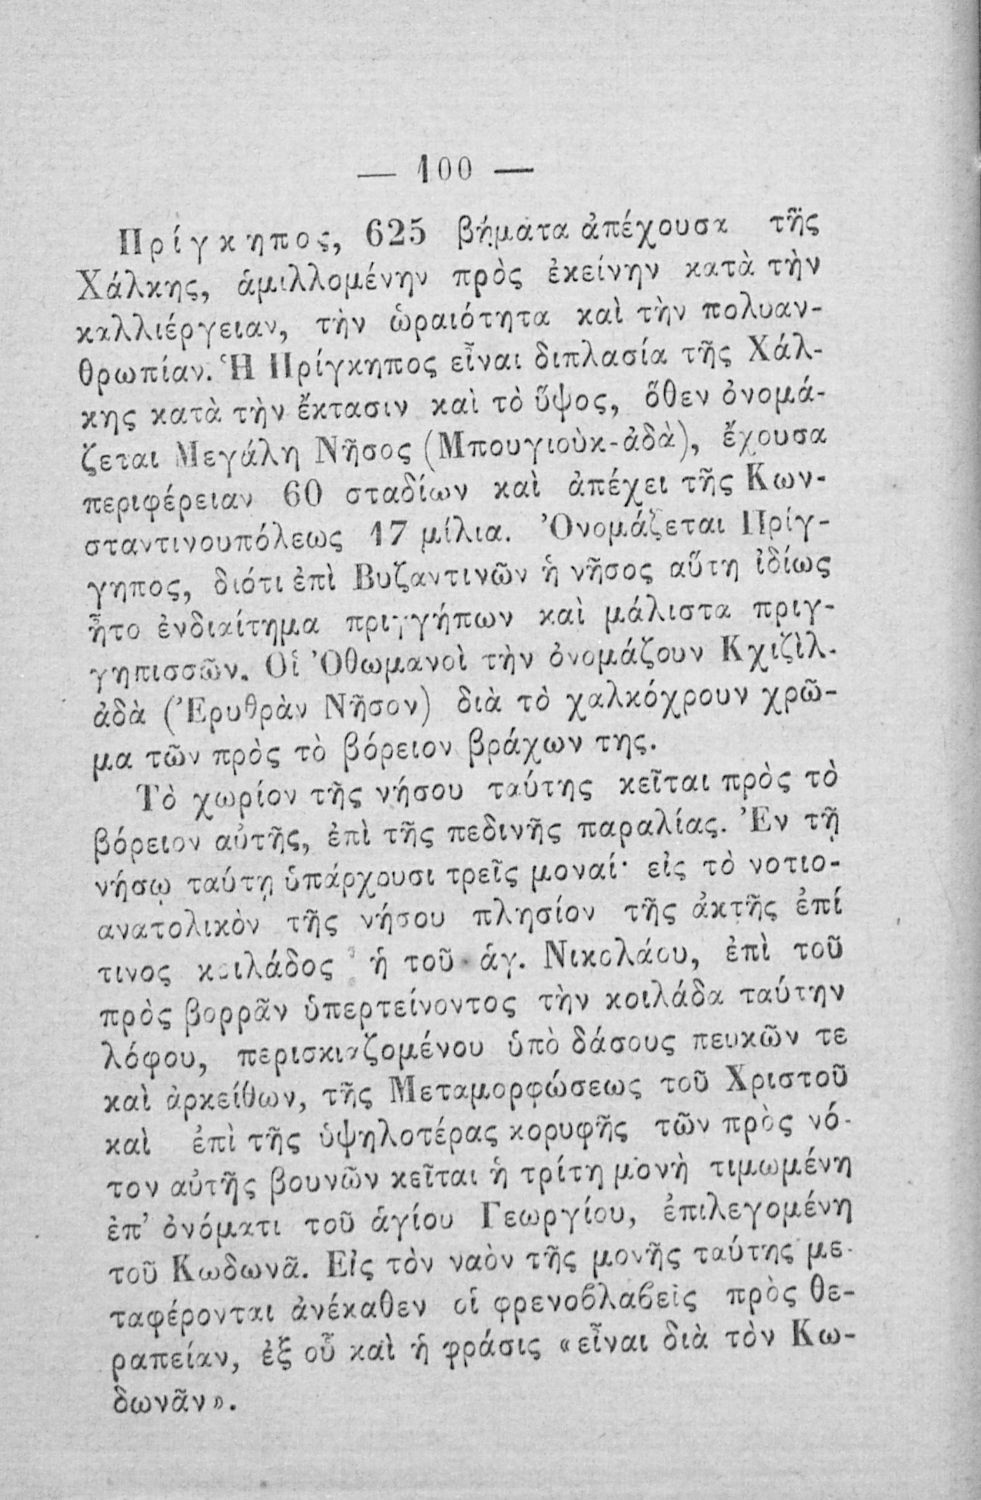 — 100 —
Πρίγκηπος, 625 βήματα ἀπέχουσα τῆς
Χάλκης, ἁμιλλομένην πρὸς ἐκείνην κατὰ τὴν
καλλιέργειαν, τὴν ὡραιότητα καὶ τὴν πολυαν-
θρωπίαν. Ἡ Πρίγκηπος εἶναι διπλασία τῆς Χάλ-
κης κατὰ τὴν ἔκτασιν καὶ τὸ ὕψος, ὅθεν ὀνομά-
ζεται Μεγάλη Νῆσος (Μπουγιοὺκ-ἀδὰ), ἔχουσα
περιφέρειαν 60 σταδίων καὶ ἀπέχει τῆς Κων-
σταντινουπόλεως 17 μίλια. Ὀνομάζεται Πρίγ-
γηπος, διότι ἐπὶ Βυζαντινῶν ἡ νῆσος αὕτη ἰδίως
ἦτο ἐνδιαίτημα πριγγήπων καὶ μάλιστα πριγ-
γηπισσῶν. Οἱ Ὀθωμανοὶ τὴν ὀνομάζουν Κχιζὶλ-
ἀδὰ (Ἐρυθρὰν Νῆσον) διὰ τὸ χαλκόχρουν χρῶ-
μα τῶν πρὸς τὸ βόρειον βράχων της.
Τὸ χωρίον τῆς νήσου ταύτης κεῖται πρὸς τὸ
βόρειον αὐτῆς, ἐπὶ τῆς πεδινῆς παραλίας. Ἐν τῇ
νήσῳ ταύτῃ ὑπάρχουσι τρεῖς μοναί· εἰς τὸ νοτιο-
ανατολικὸν τῆς νήσου πλησίον τῆς ἀκτῆς ἐπί
τινος κοιλάδος ἡ τοῦ ἁγ. Νικολάου, ἐπὶ τοῦ
πρὸς βορρᾶν ὑπερτείνοντος τὴν κοιλάδα ταύτην
λόφου, περισκιαζομένου ὑπὸ δάσους πευκῶν τε
καὶ ἀρκείθων, τῆς Μεταμορφώσεως τοῦ Χριστοῦ
καὶ ἐπὶ τῆς ὑψηλοτέρας κορυφῆς τῶν πρὸς νό-
τον αὐτῆς βουνῶν κεῖται ἡ τρίτη μονὴ τιμωμένη
ἐπ’ ὀνόματι τοῦ ἁγίου Γεωργίου, ἐπιλεγομένη
τοῦ Κωδωνᾶ. Εἰς τὸν ναὸν τῆς μονῆς ταύτης με-
ταφέρονται ἀνέκαθεν οἱ φρενοβλαβεῖς πρὸς θε-
ραπείαν, ἐξ οὗ καὶ ἡ φράσις «εἶναι διὰ τὸν Κω-
δωνᾶν».